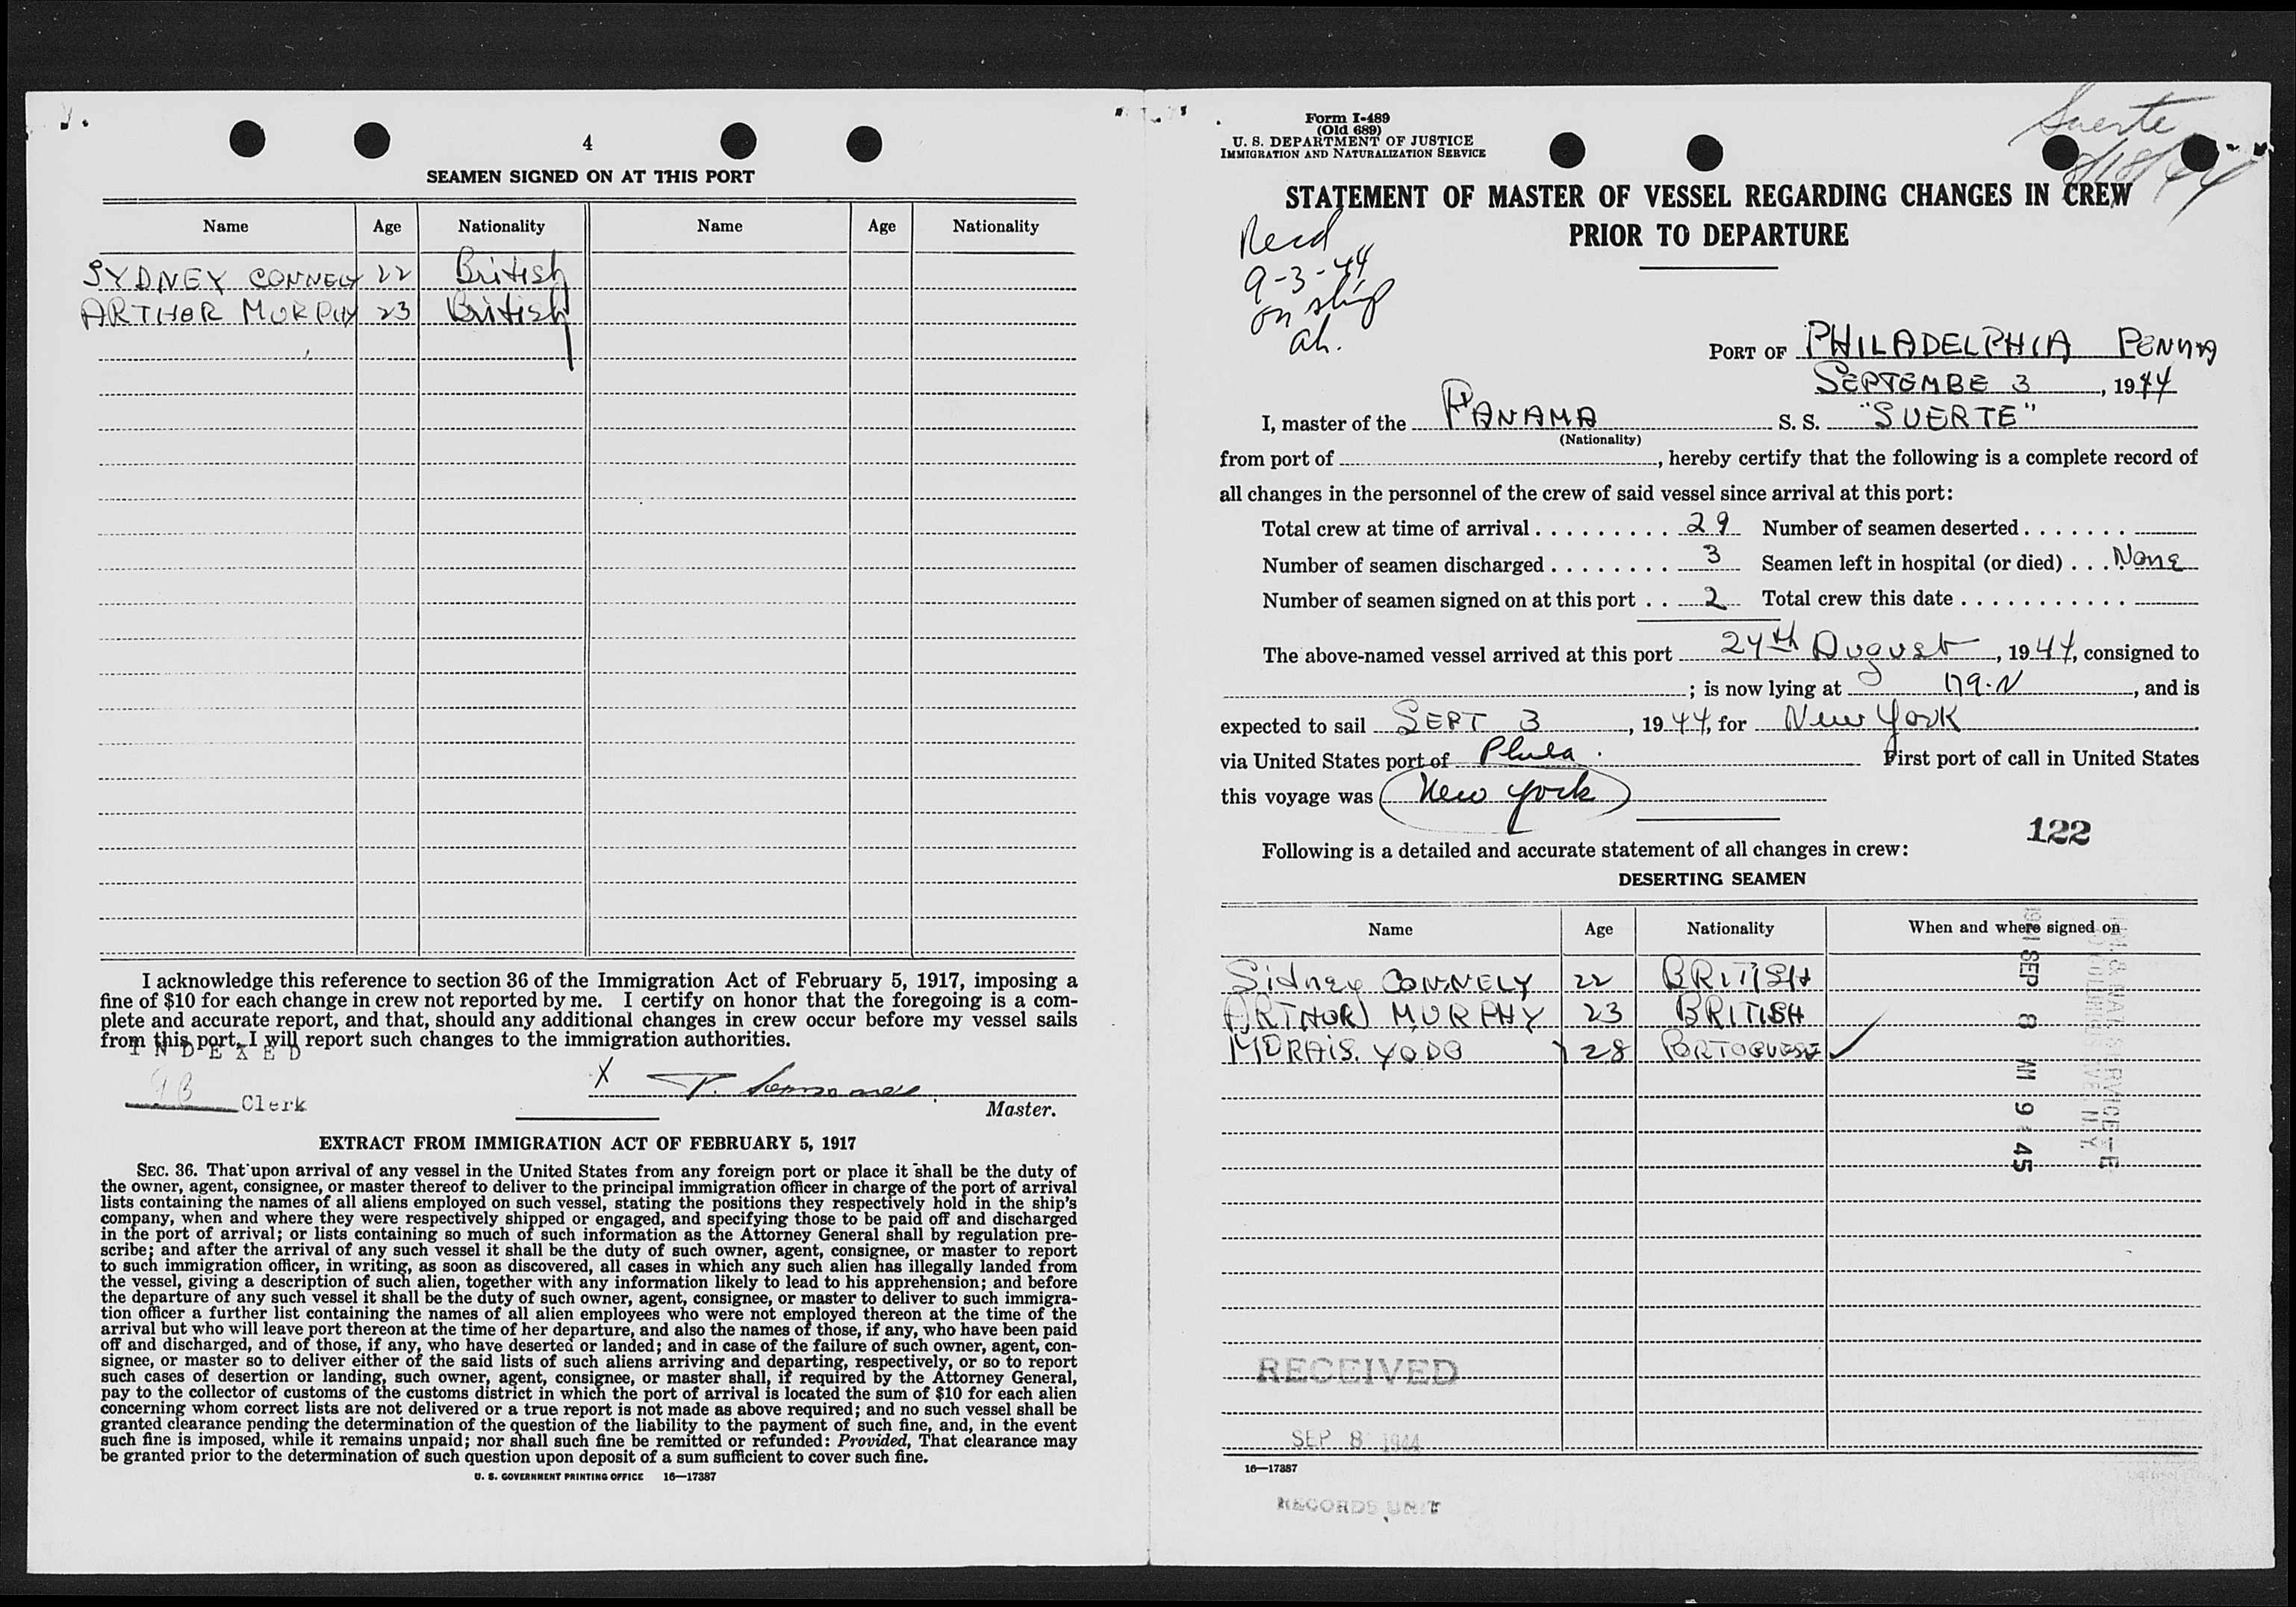 4
SEAMEN SIGNED ON AT THIS PORT
Name Age Nationality Name Age Nationality
SYDNEY CONNELY 22 British
ARTHOR MURPHY 23 British
I acknowledge this reference to section 36 of the Immigration Act of February 5, 1917, imposing a
fine of $10 for each change in crew not reported by me. I certify on honor that the foregoing is a com-
plete and accurate report, and that, should any additional changes in crew occur before my vessel sails
from this port, I will report such changes to the immigration authorities.
INDEXED
Clerk
X
Master.
EXTRACT FROM IMMIGRATION ACT OF FEBRUARY 5, 1917
SEC. 36. That upon arrival of any vessel in the United States from any foreign port or place it shall be the duty of
the owner, agent, consignee, or master thereof to deliver to the principal immigration officer in charge of the port of arrival
lists containing the names of all aliens employed on such vessel, stating the positions they respectively hold in the ship's
company, when and where they were respectively shipped or engaged, and specifying those to be paid off and discharged
in the port of arrival; or lists containing so much of such information as the Attorney General shall by regulation pre-
scribe; and after the arrival of any such vessel it shall be the duty of such owner, agent, consignee, or master to report
to such immigration officer, in writing, as soon as discovered, all cases in which any such alien has illegally landed from
the vessel, giving a description of such alien, together with any information likely to lead to his apprehension; and before
the departure of any such vessel it shall be the duty of such owner, agent, consignee, or master to deliver to such immigra-
tion officer a further list containing the names of all alien employees who were not employed thereon at the time of the
arrival but who will leave port thereon at the time of her departure, and also the names of those, if any, who have been paid
off and discharged, and of those, if any, who have deserted or landed; and in case of the failure of such owner, agent, con-
signee, or master so to deliver either of the said lists of such aliens arriving and departing, respectively, or so to report
such cases of desertion or landing, such owner, agent, consignee, or master shall, if required by the Attorney General,
pay to the collector of customs of the customs district in which the port of arrival is located the sum of $10 for each alien
concerning whom correct lists are not delivered or a true report is not made as above required; and no such vessel shall be
granted clearance pending the determination of the question of the liability to the payment of such fine, and, in the event
such fine is imposed, while it remains unpaid; nor shall such fine be remitted or refunded: Provided, That clearance may
be granted prior to the determination of such question upon deposit of a sum sufficient to cover such fine.
U. S. GOVERNMENT PRINTING OFFICE 16—17387
Form I-489
(Old 689)
U. S. DEPARTMENT OF JUSTICE
IMMIGRATION AND NATURALIZATION SERVICE
Suerte
8/18/44
STATEMENT OF MASTER OF VESSEL REGARDING CHANGES IN CREW
PRIOR TO DEPARTURE
Recd
9-3-44
on ship
ah.
PORT OF PHILADELPHIA PENNA
SEPTEMBE 3, 1944
I, master of the PANAMA S. S. "SUERTE"
(Nationality)
from port of , hereby certify that the following is a complete record of
all changes in the personnel of the crew of said vessel since arrival at this port:
Total crew at time of arrival . . . . . . . . . 29 Number of seamen deserted . . . . . . .
Number of seamen discharged . . . . . . . . 3 Seamen left in hospital (or died) . . . None
Number of seamen signed on at this port . . 2 Total crew this date . . . . . . . . . . .
The above-named vessel arrived at this port 24th August, 1944, consigned to
; is now lying at 179·N, and is
expected to sail SEPT 3, 1944, for New York
via United States port of Phila. First port of call in United States
this voyage was New York
122
Following is a detailed and accurate statement of all changes in crew:
DESERTING SEAMEN
Name Age Nationality When and where signed on
Sidney CONNELY 22 BRITISH
ARTHOR MURPHY 23 BRITISH
MORAIS. 28 PORTOGUESE
SEP 8 AM 9 45
RECEIVED
SEP 8 1944
16—17387
RECORDS UNIT